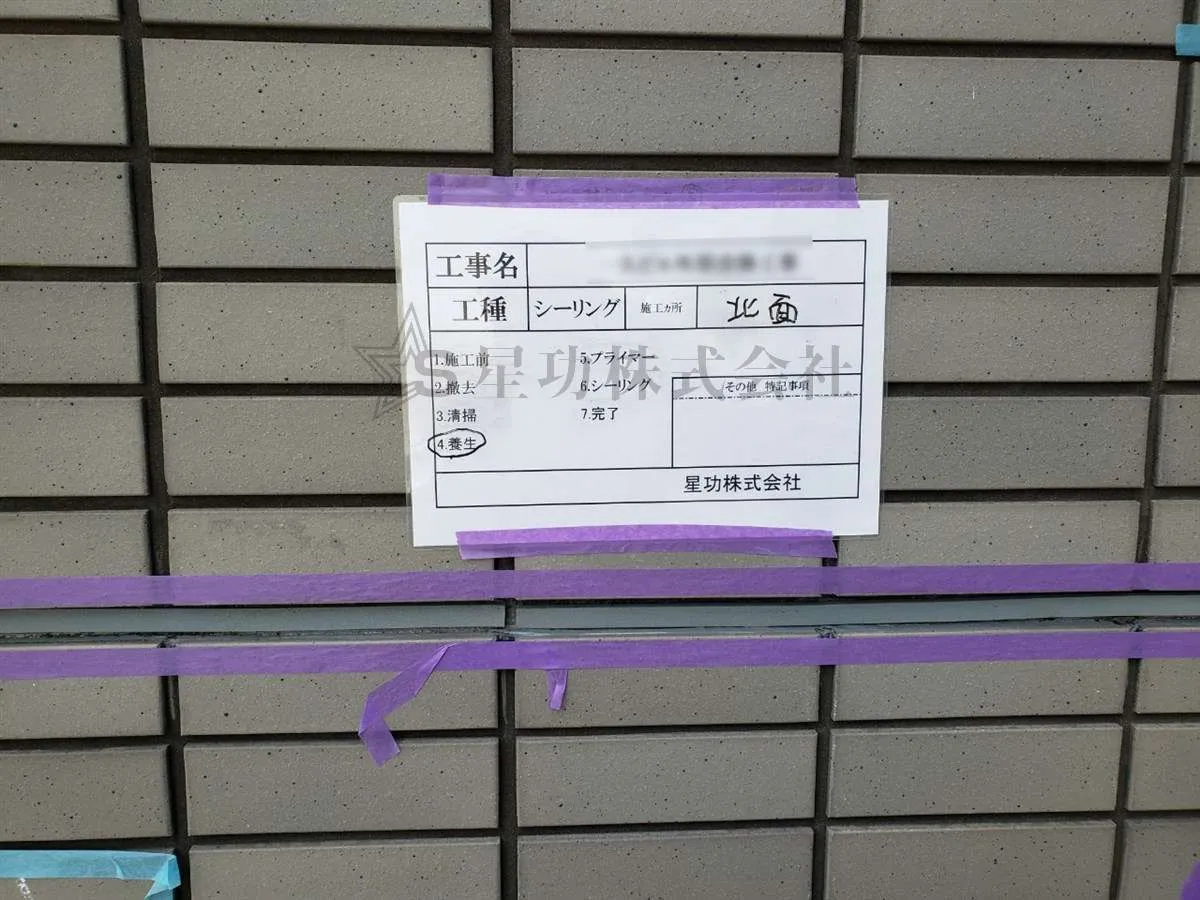 工事名
工種 シーリング 施工ヵ所 北面
1.施工前 5.プライマー
2.撤去 6.シーリング その他 特記事項
3.清掃 7.完了
4.養生
星功株式会社
S星功株式会社